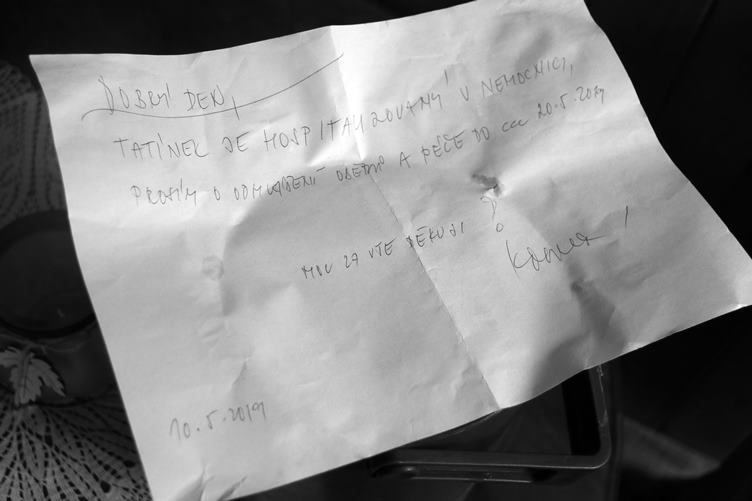 DOBRÝ DEN,
TATÍNEK JE HOSPITALIZOVANÝ V NEMOCNICI,
PROSÍM O ODHLÁŠENÍ OBĚDŮ A PÉČE DO cca 20.5.2019
MOC ZA VŠE DĚKUJI
10.5.2019